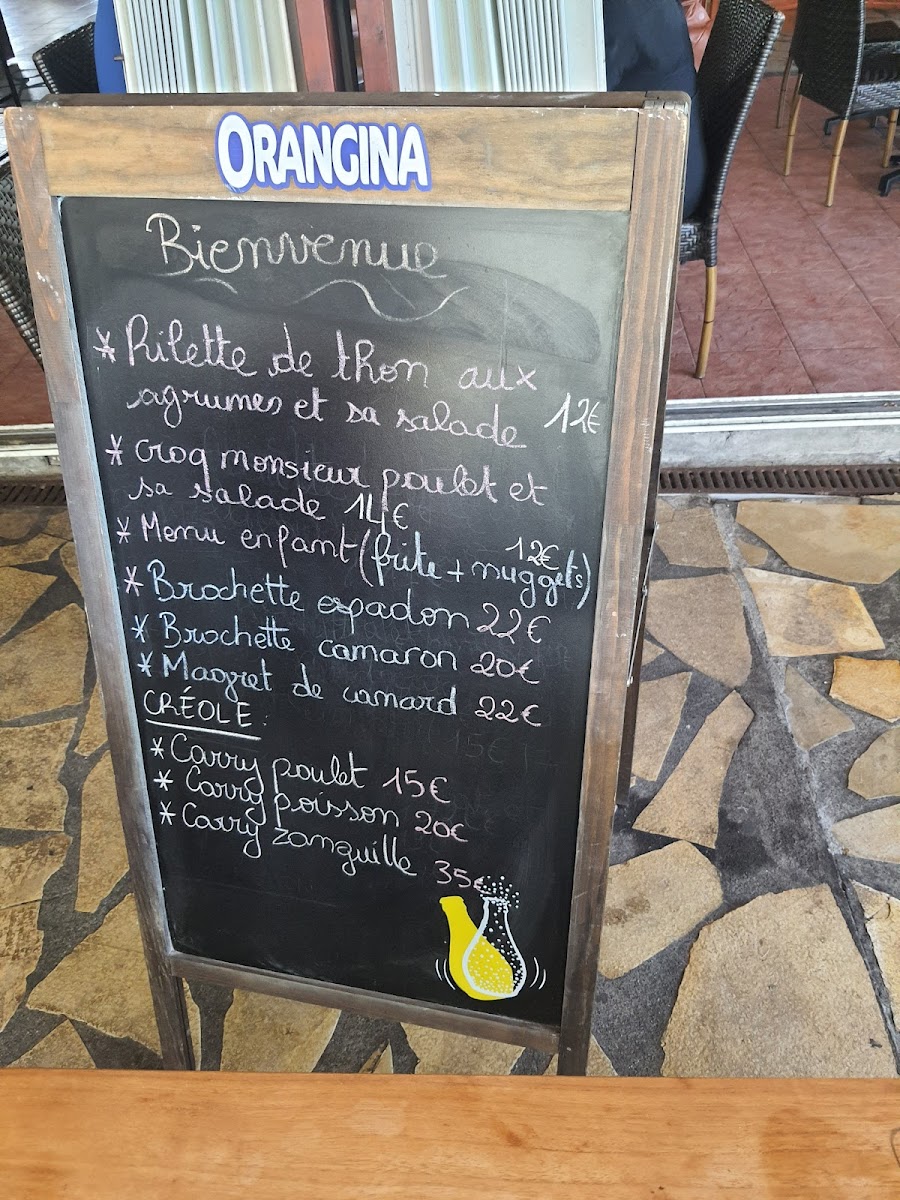 ORANGINA
Bienvenue
* Rilette de thon aux
agrumes et sa salade 12€
* croq monsieur poulet et
sa salade 14€
* Menu enfant (frite + nuggets) 12€
* Brochette espadon 22€
* Brochette camaron 20€
* Magret de canard 22€
CRÉOLE :
* Carry poulet 15€
* Carry poisson 20€
* Carry zanguille 35€